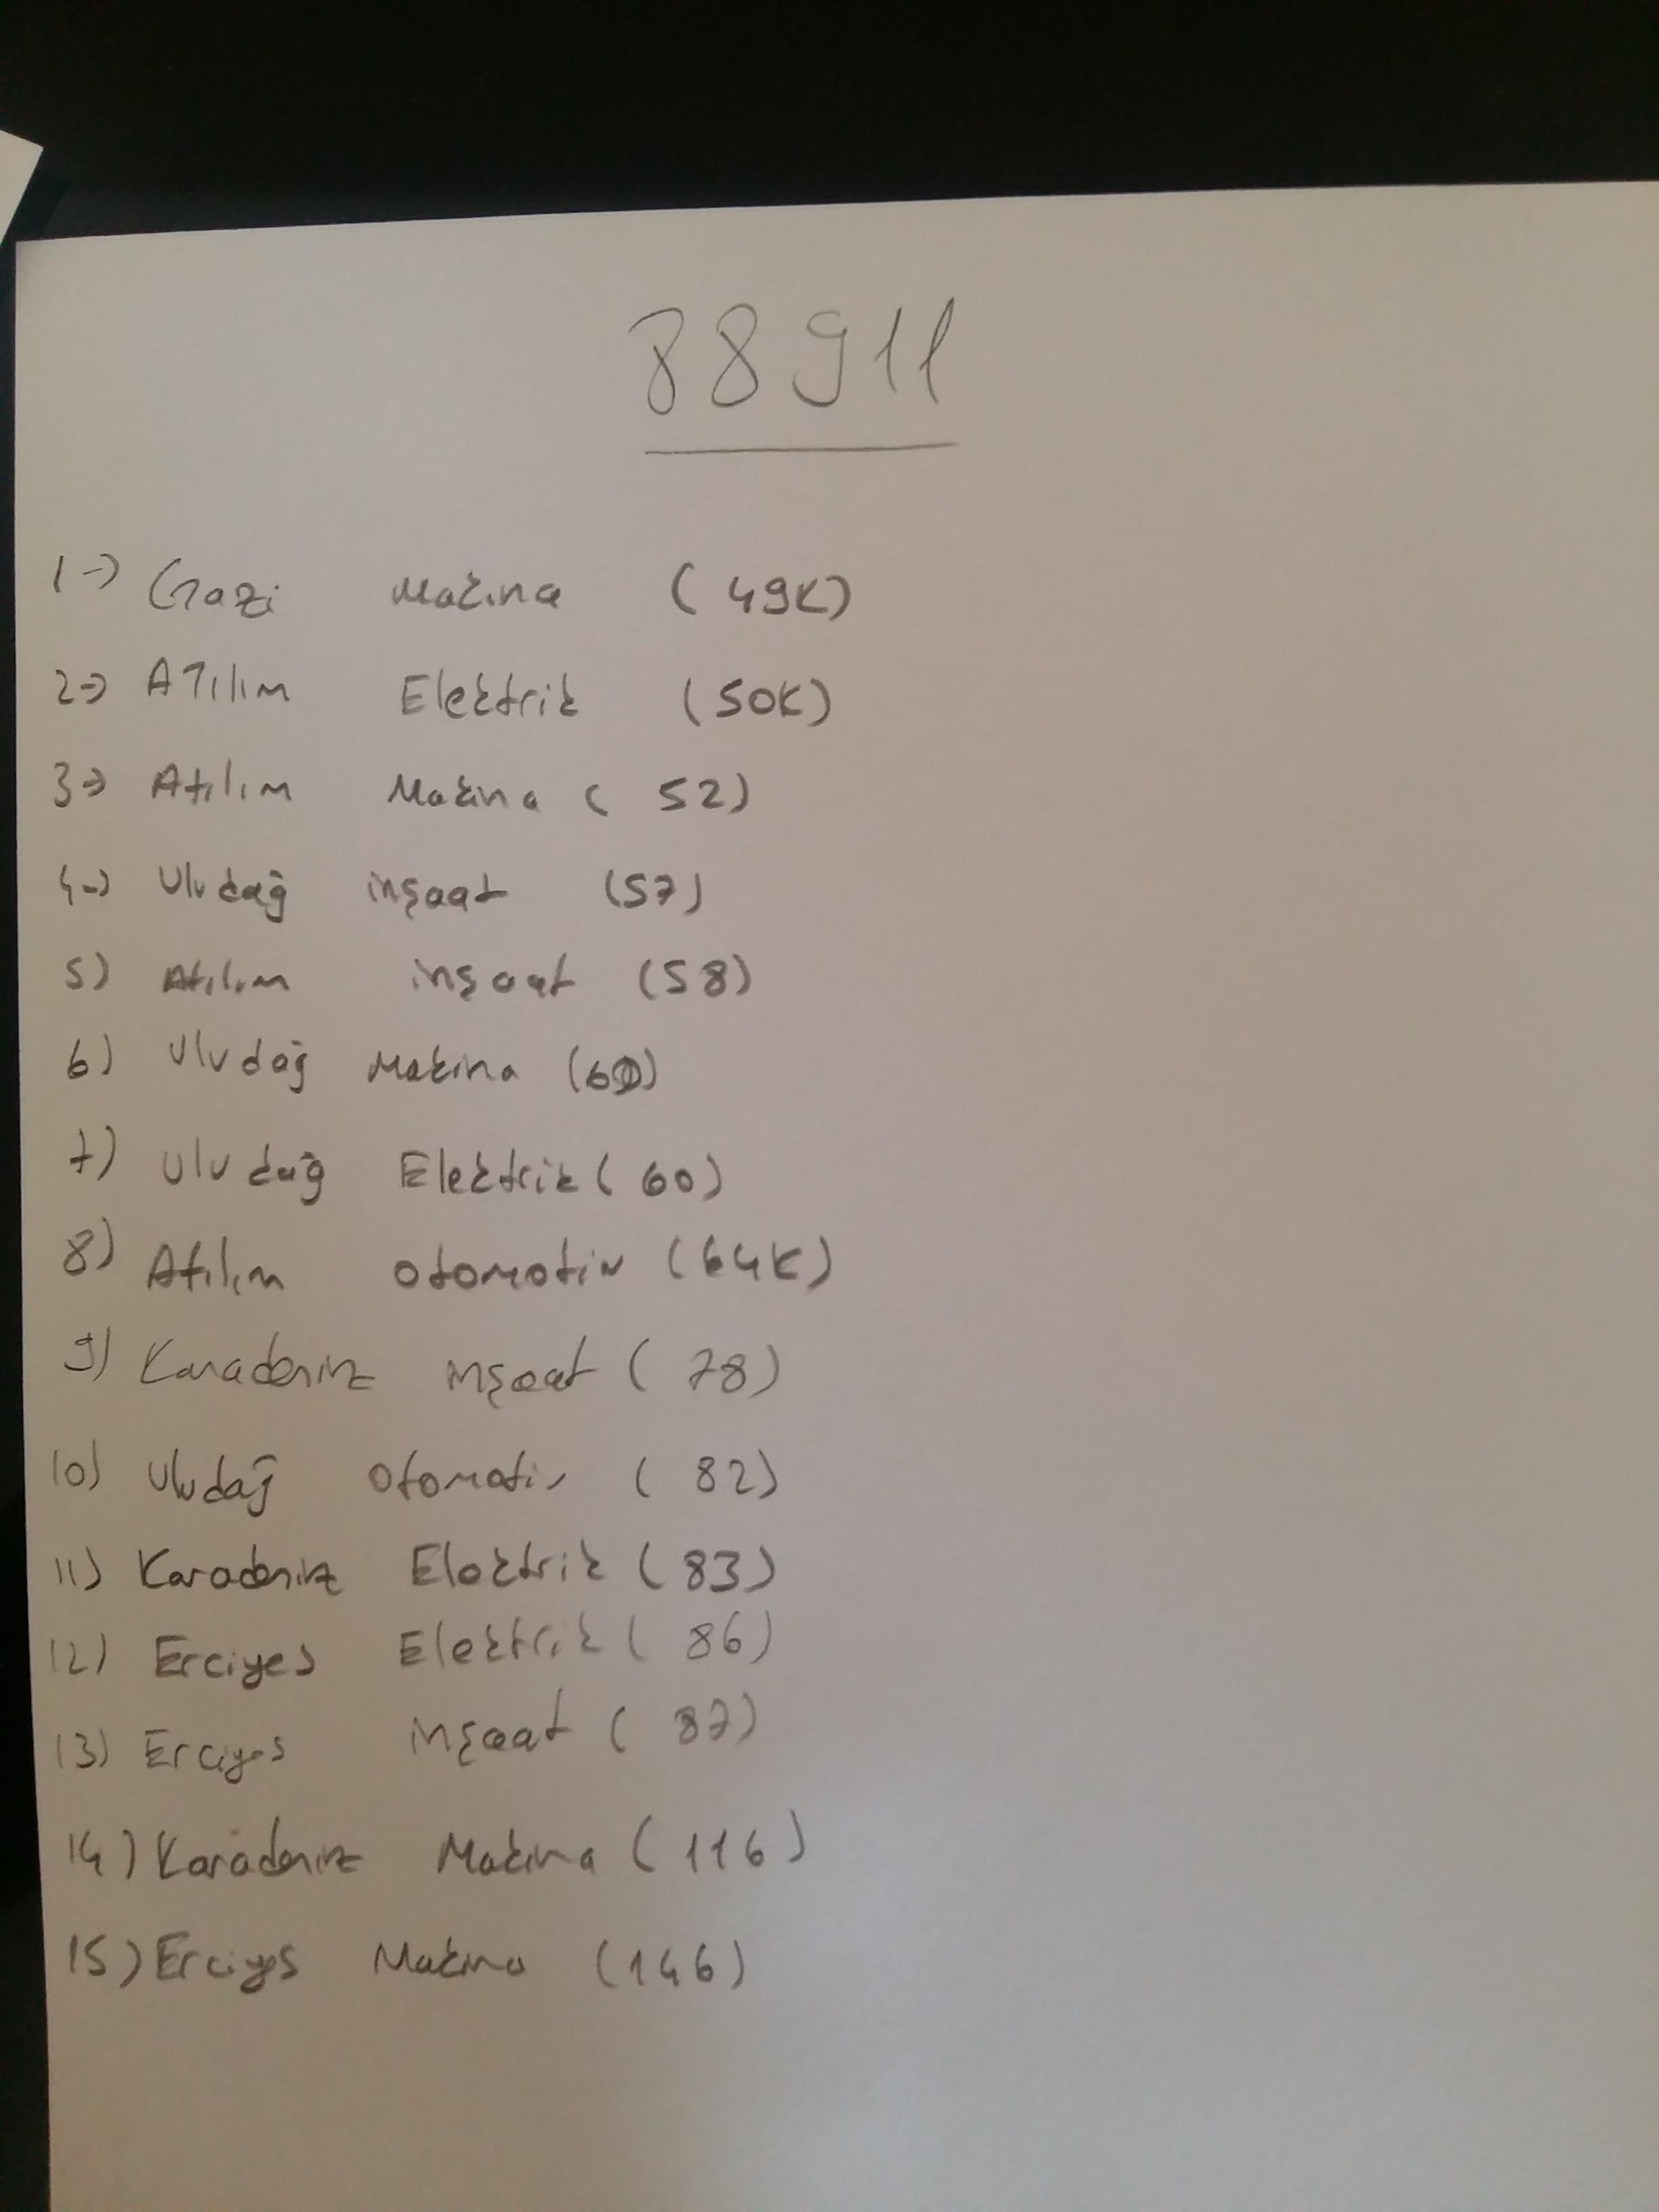 88911
1-> Gazi Makina (49K)
2=> ATılım Elektrik (50K)
3=> Atılım Makina (52)
4=> Uludağ inşaat (57)
5) Atılım inşaat (58)
6) Uludağ Makina
7) Uludağ Elektrik (60)
8) Atılım otomotiv (64K)
9) Karadeniz inşaat (78)
10) Uludağ Otomotiv (82)
11) Karadeniz Elektrik (83)
12) Erciyes Elektrik (86)
13) Erciyes inşaat (87)
14) Karadeniz Makina (116)
15) Erciyes Makina (146)